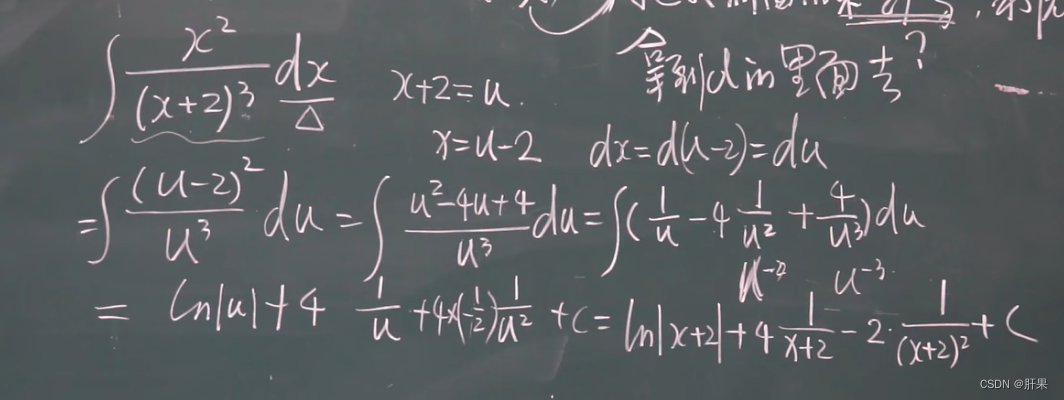 ?
拿到d的里面去?
∫ x²/(x+2)³ dx x+2=u.
x=u-2 dx=d(u-2)=du
=∫ (u-2)²/u³ du = ∫ (u²-4u+4)/u³ du = ∫(1/u - 4 1/u² + 4/u³)du
u⁻² u⁻³
= ln|u|+4 1/u +4×(-1/2)1/u² +c = ln|x+2|+4 1/(x+2) - 2· 1/(x+2)² + C
CSDN @肝果